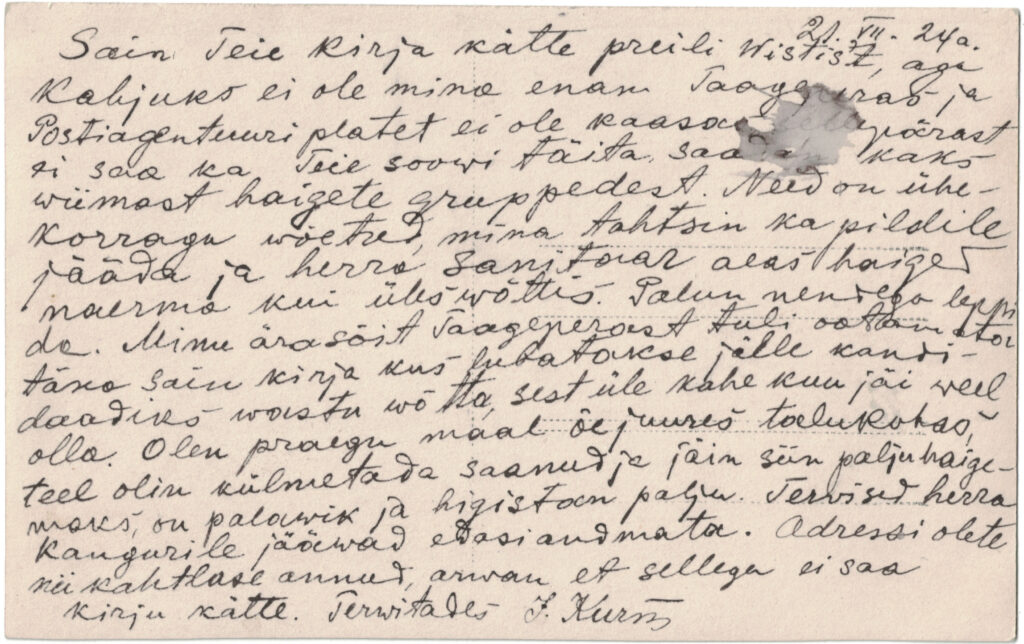 21. VII. 24a.
Sain Teie kirja kätte preili Wistist, aga
Kahjuks ei ole mina enam Taageperas ja
Postiagentuuri platet ei ole kaasa pärast
ei saa ka Teie soowi täita, saadan kaks
wiimast haigete gruppedest. Need on ühe-
korragu wõetud, mina tahtsin ka pildile
jääda ja herra sanitaar aeas haiged
naerma kui ülıs wõttis. Palun nendega leppi
da. Minu ärasõit Taageperast tuli ootamator
täna sain kirja kus lubatakse jälle kandi-
daadiks wastu wõtta, sest üle kahe kuu jäi weel
olla. Olen praegu maal õe juures talukohas,
teel olin külmetada saanud ja jäin siin palju haige-
maks, on palawik ja higistan palju. Terwised herra
Kangurile jääwad edasiandmata. Adressi olete
nii kahtlase annud, arwan et sellega ei saa
kirju kätte. Terwitades J. Kurm